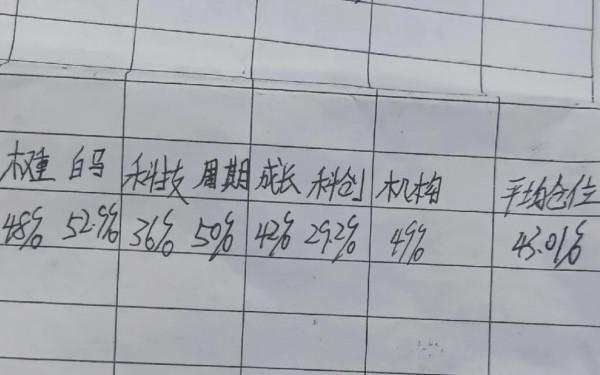 权重 白马 科技 周期 成长 科创 机构 平均仓位
48% 52.9% 36% 50% 42% 29.2% 49% 43.01%